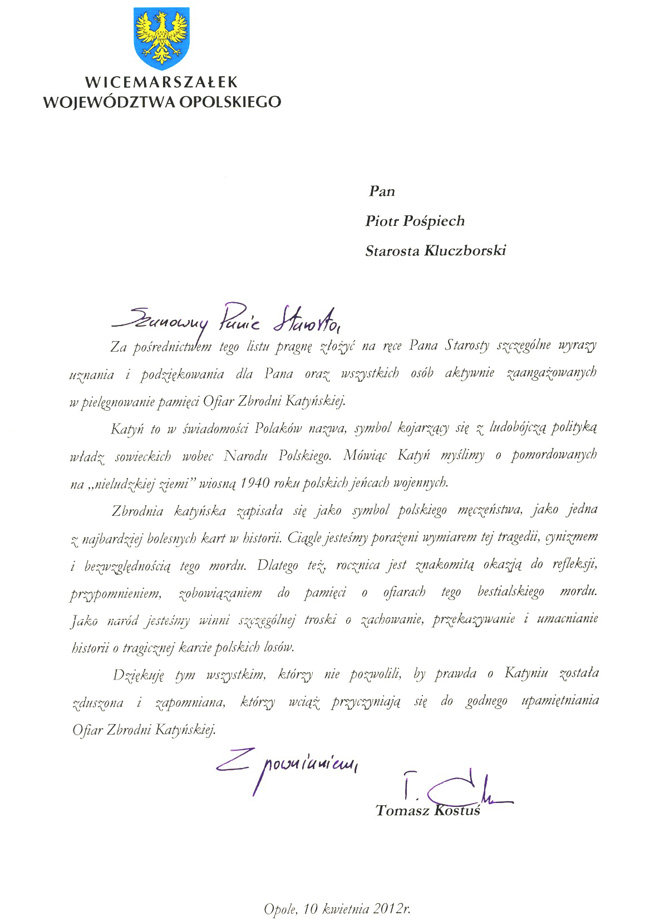 WICEMARSZAŁEK
WOJEWÓDZTWA OPOLSKIEGO
Pan
Piotr Pośpiech
Starosta Kluczborski
Szanowny Panie Starosto,
Za pośrednictwem tego listu pragnę złożyć na ręce Pana Starosty szczególne wyrazy
uznania i podziękowania dla Pana oraz wszystkich osób aktywnie zaangażowanych
w pielęgnowanie pamięci Ofiar Zbrodni Katyńskiej.
Katyń to w świadomości Polaków nazwa, symbol kojarzący się z ludobójczą polityką
władz sowieckich wobec Narodu Polskiego. Mówiąc Katyń myślimy o pomordowanych
na „nieludzkiej ziemi” wiosną 1940 roku polskich jeńcach wojennych.
Zbrodnia katyńska zapisała się jako symbol polskiego męczeństwa, jako jedna
z najbardziej bolesnych kart w historii. Ciągle jesteśmy porażeni wymiarem tej tragedii, cynizmem
i bezwzględnością tego mordu. Dlatego też, rocznica jest znakomitą okazją do refleksji,
przypomnieniem, zobowiązaniem do pamięci o ofiarach tego bestialskiego mordu.
Jako naród jesteśmy winni szczególnej troski o zachowanie, przekazywanie i umacnianie
historii o tragicznej karcie polskich losów.
Dziękuję tym wszystkim, którzy nie pozwolili, by prawda o Katyniu została
zduszona i zapomniana, którzy wciąż przyczyniają się do godnego upamiętniania
Ofiar Zbrodni Katyńskiej.
Z poważaniem,
T.
Tomasz Kostuś
Opole, 10 kwietnia 2012r.